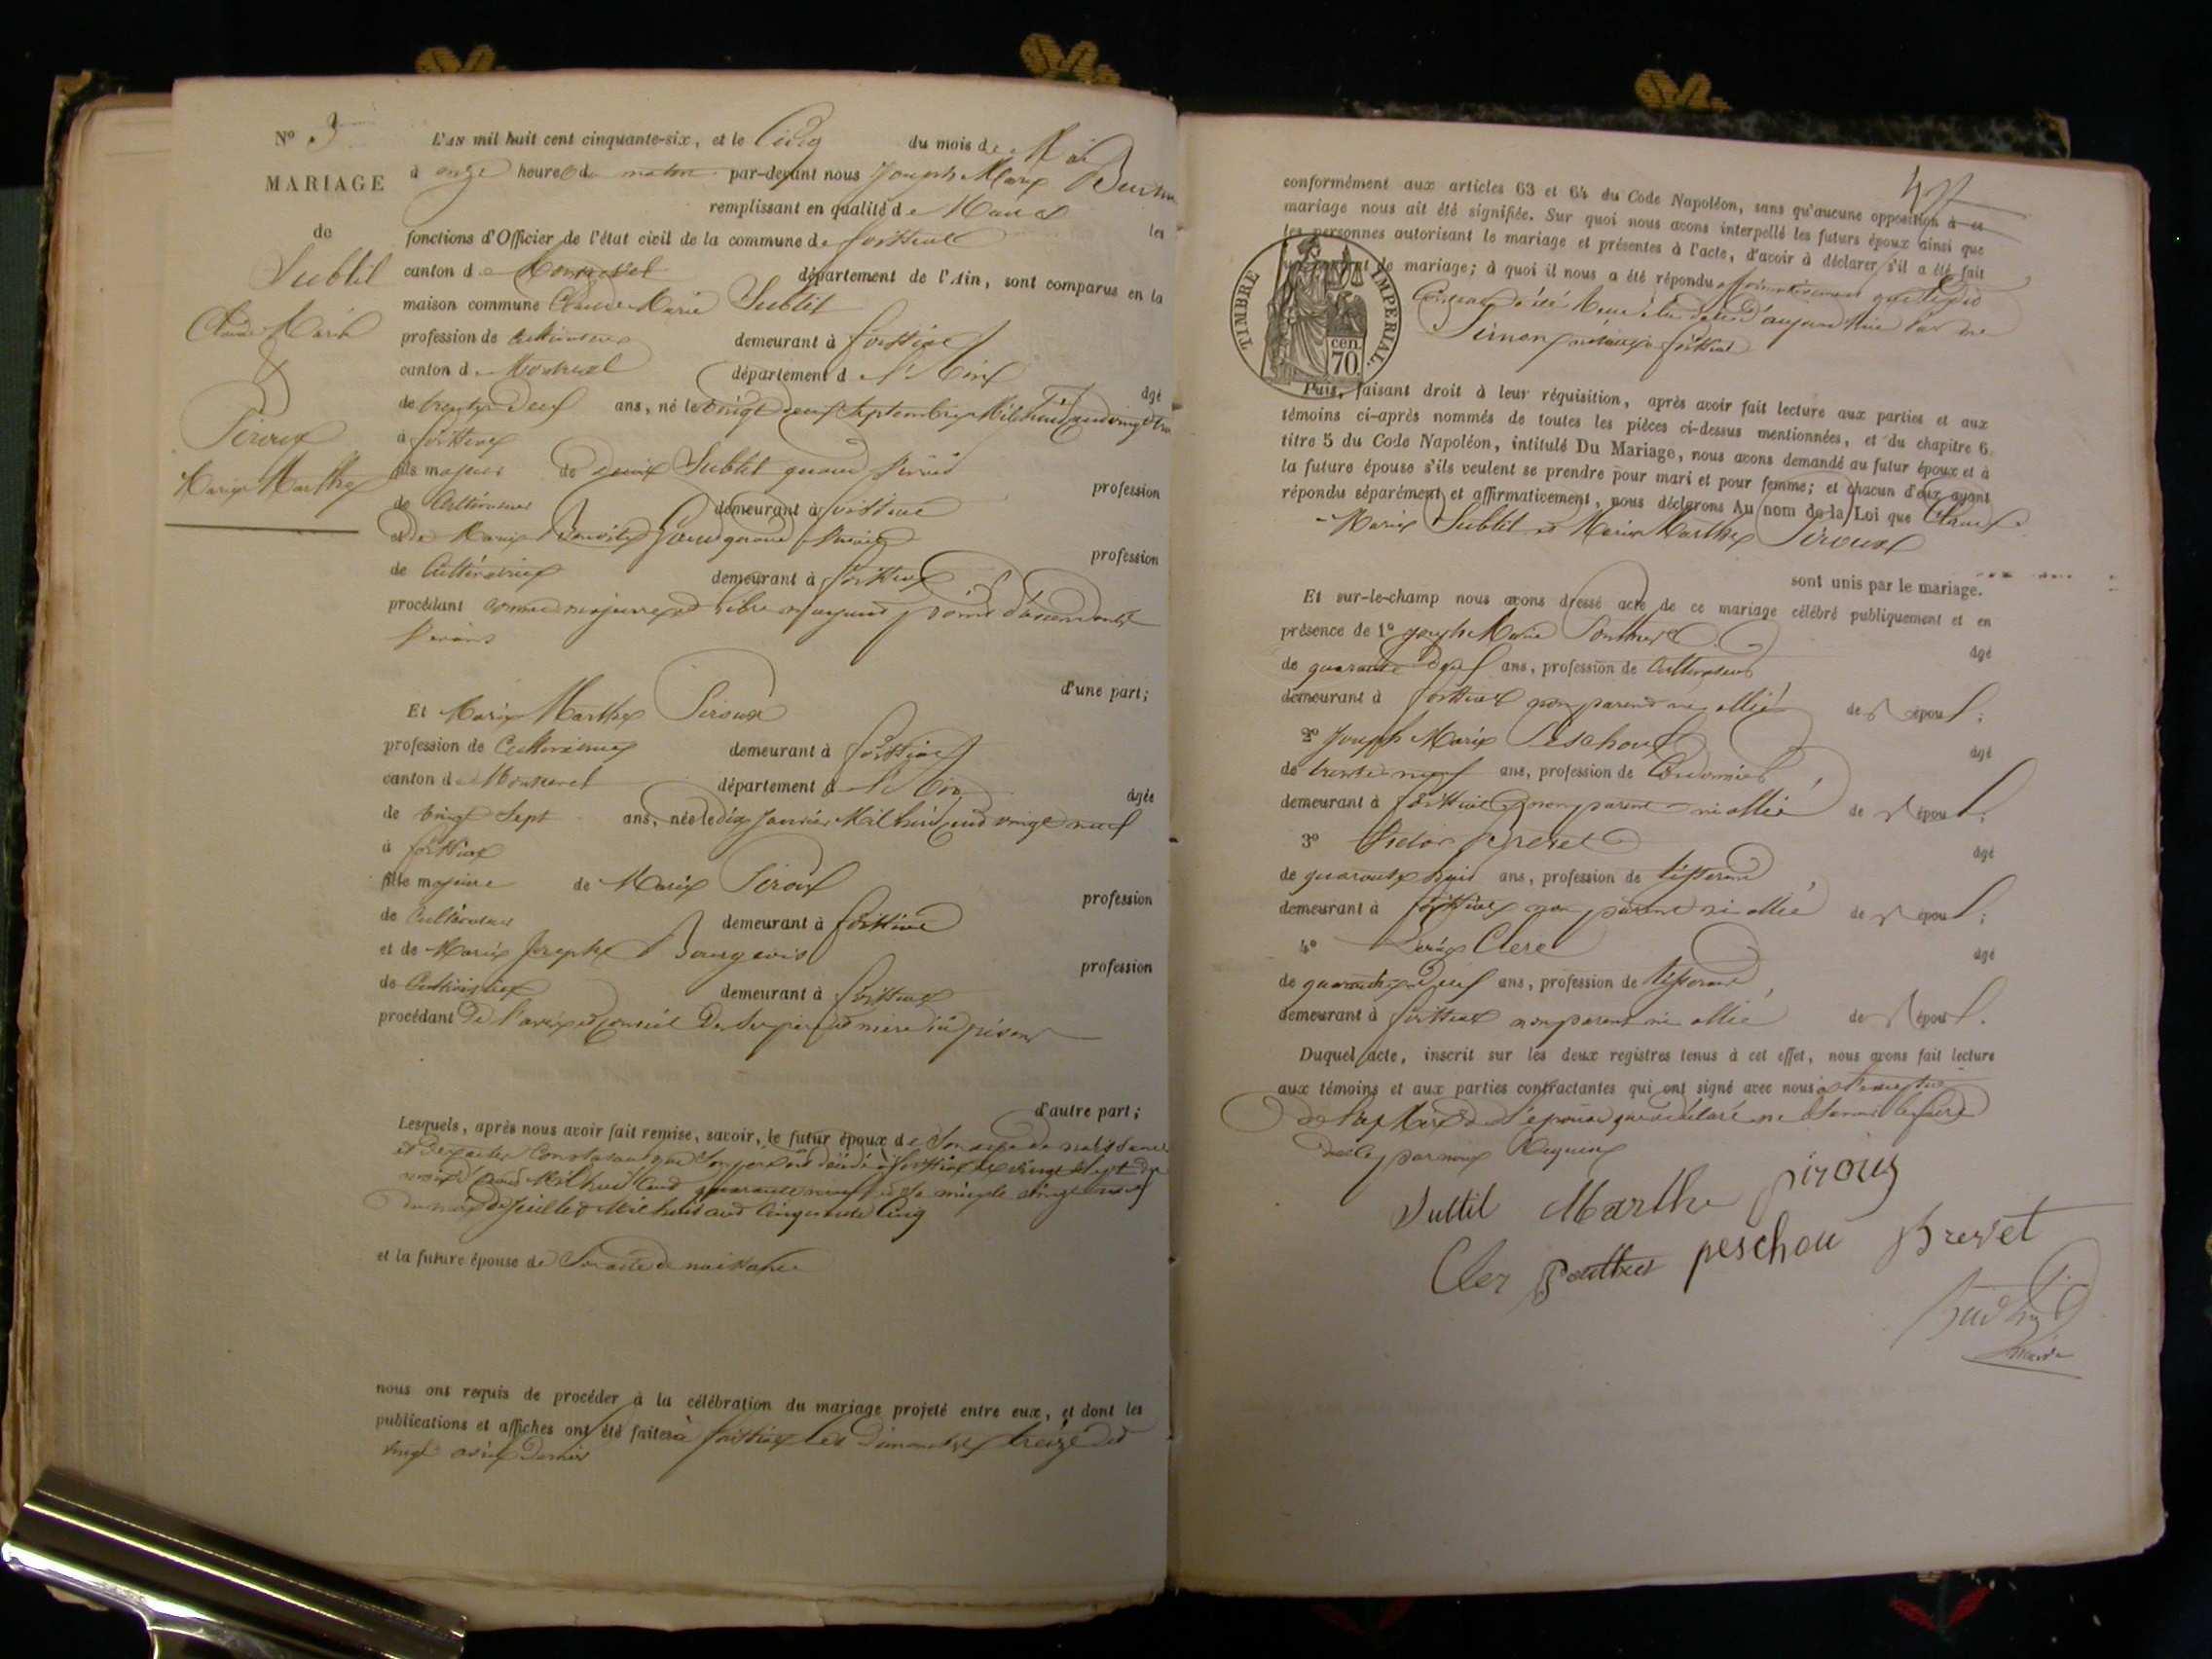 N° 3
MARIAGE
de
Subtil
Claude Marie
&
Piroux
Marie Marthe
L'AN mil huit cent cinquante-six, et le Cinq du mois de Mai
à onze heures du matin par-devant nous Joseph Marie
remplissant en qualité de Maire les
fonctions d'Officier de l'état civil de la commune de foissiat
canton de Montrevel département de l'Ain, sont comparus en la
maison commune Claude Marie Subtil
profession de Cultivateur demeurant à foissiat
canton de Montrevel département de l'Ain âgé
de trente deux ans, né le vingt deux Septembre Mil huit cent vingt
à foissiat
fils majeur de Subtil quand vivait profession
de Cultivateur demeurant à foissiat
et de Marie quand vivait profession
de Cultivatrice demeurant à foissiat
procédant comme majeur et libre n'ayant point d'ascendants
vivants
d'une part;
Et Marie Marthe Piroux
profession de Cultivatrice demeurant à foissiat
canton de Montrevel département de l'Ain âgée
de vingt Sept ans, née le dix Janvier Mil huit cent vingt neuf
à foissiat
fille majeure de Marie Piroux profession
de Cultivateur demeurant à foissiat
et de Marie Josephe Bourgeois profession
de Cultivatrice demeurant à foissiat
procédant de l'avis et conseil de Ses père et mère ici présent
d'autre part;
Lesquels, après nous avoir fait remise, savoir, le futur époux de Son acte de naissance
et de constatant que Son père est décédé à foissiat le vingt Sept
Mil huit Cent quarante neuf et Sa mère le vingt
du mois de Juillet Mil huit cent Cinquante Cinq
et la future épouse de Son acte de naissance
nous ont requis de procéder à la célébration du mariage projeté entre eux, et dont les
publications et affiches ont été faites à foissiat les dimanches treize et
vingt avril dernier
conformément aux articles 63 et 64 du Code Napoléon, sans qu'aucune opposition à ce
mariage nous ait été signifiée. Sur quoi nous avons interpellé les futurs époux ainsi que
les personnes autorisant le mariage et présentes à l'acte, d'avoir à déclarer s'il a été fait
de mariage; à quoi il nous a été répondu affirmativement que ledit
Contrat a été Reçu à la date d'aujourd'hui Par me
notaire à foissiat
TIMBRE IMPERIAL.
cen.
70
Puis, faisant droit à leur réquisition, après avoir fait lecture aux parties et aux
témoins ci-après nommés de toutes les pièces ci-dessus mentionnées, et du chapitre 6,
titre 5 du Code Napoléon, intitulé Du Mariage, nous avons demandé au futur époux et à
la future épouse s'ils veulent se prendre pour mari et pour femme; et chacun d'eux ayant
répondu séparément et affirmativement, nous déclarons Au nom de la Loi que Claude
Marie Subtil et Marie Marthe Piroux
sont unis par le mariage.
Et sur-le-champ nous avons dressé acte de ce mariage célébré publiquement et en
présence de 1° Joseph Marie âgé
de quarante deux ans, profession de Cultivateur
demeurant à foissiat non parent ni allié de l'époux;
2° Joseph Marie Peschoux âgé
de trente neuf ans, profession de Cordonnier
demeurant à foissiat non parent ni allié de l'époux;
3° Brevet âgé
de quarante huit ans, profession de tisserand
demeurant à foissiat non parent ni allié de l'époux;
4° Clerc âgé
de quarante deux ans, profession de tisserand
demeurant à foissiat non parent ni allié de l'époux.
Duquel acte, inscrit sur les deux registres tenus à cet effet, nous avons fait lecture
aux témoins et aux parties contractantes qui ont signé avec nous
de l'épouse qui a déclaré ne Savoir le faire
de ce par nous Requis
Subtil Marthe piroux
Cler peschou Brevet
maire